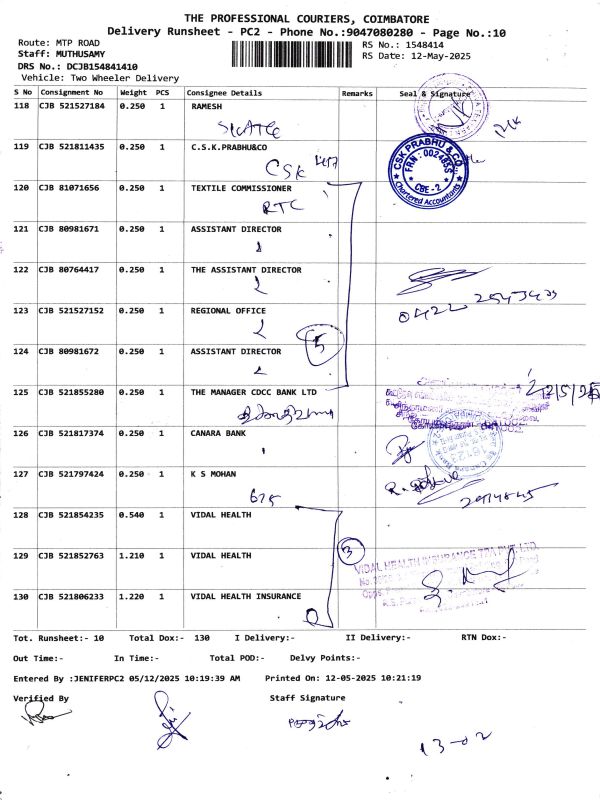 THE PROFESSIONAL COURIERS, COIMBATORE
Delivery Runsheet - PC2 - Phone No.:9047080280 - Page No.:10
Route: MTP ROAD
Staff: MUTHUSAMY
DRS No.: DCJB154841410
Vehicle: Two Wheeler Delivery
RS No.: 1548414
RS Date: 12-May-2025
S No Consignment No Weight PCS Consignee Details Remarks Seal & Signature
118 CJB 521527184 0.250 1 RAMESH
119 CJB 521811435 0.250 1 C.S.K.PRABHU&CO
CSK
CSK PRABHU & CO.
FRN : 002485S
CBE - 2
Chartered Accountants
120 CJB 81071656 0.250 1 TEXTILE COMMISSIONER
RTC
121 CJB 80981671 0.250 1 ASSISTANT DIRECTOR
122 CJB 80764417 0.250 1 THE ASSISTANT DIRECTOR
123 CJB 521527152 0.250 1 REGIONAL OFFICE
0422
5
124 CJB 80981672 0.250 1 ASSISTANT DIRECTOR
125 CJB 521855280 0.250 1 THE MANAGER CDCC BANK LTD
126 CJB 521817374 0.250 1 CANARA BANK
127 CJB 521797424 0.250 1 K S MOHAN
675
128 CJB 521854235 0.540 1 VIDAL HEALTH
129 CJB 521852763 1.210 1 VIDAL HEALTH
3
VIDAL HEALTH INSURANCE TPA PVT. LTD.
130 CJB 521806233 1.220 1 VIDAL HEALTH INSURANCE
Tot. Runsheet:- 10 Total Dox:- 130 I Delivery:- II Delivery:- RTN Dox:-
Out Time:- In Time:- Total POD:- Delvy Points:-
Entered By :JENIFERPC2 05/12/2025 10:19:39 AM Printed On: 12-05-2025 10:21:19
Verified By Staff Signature
13-02